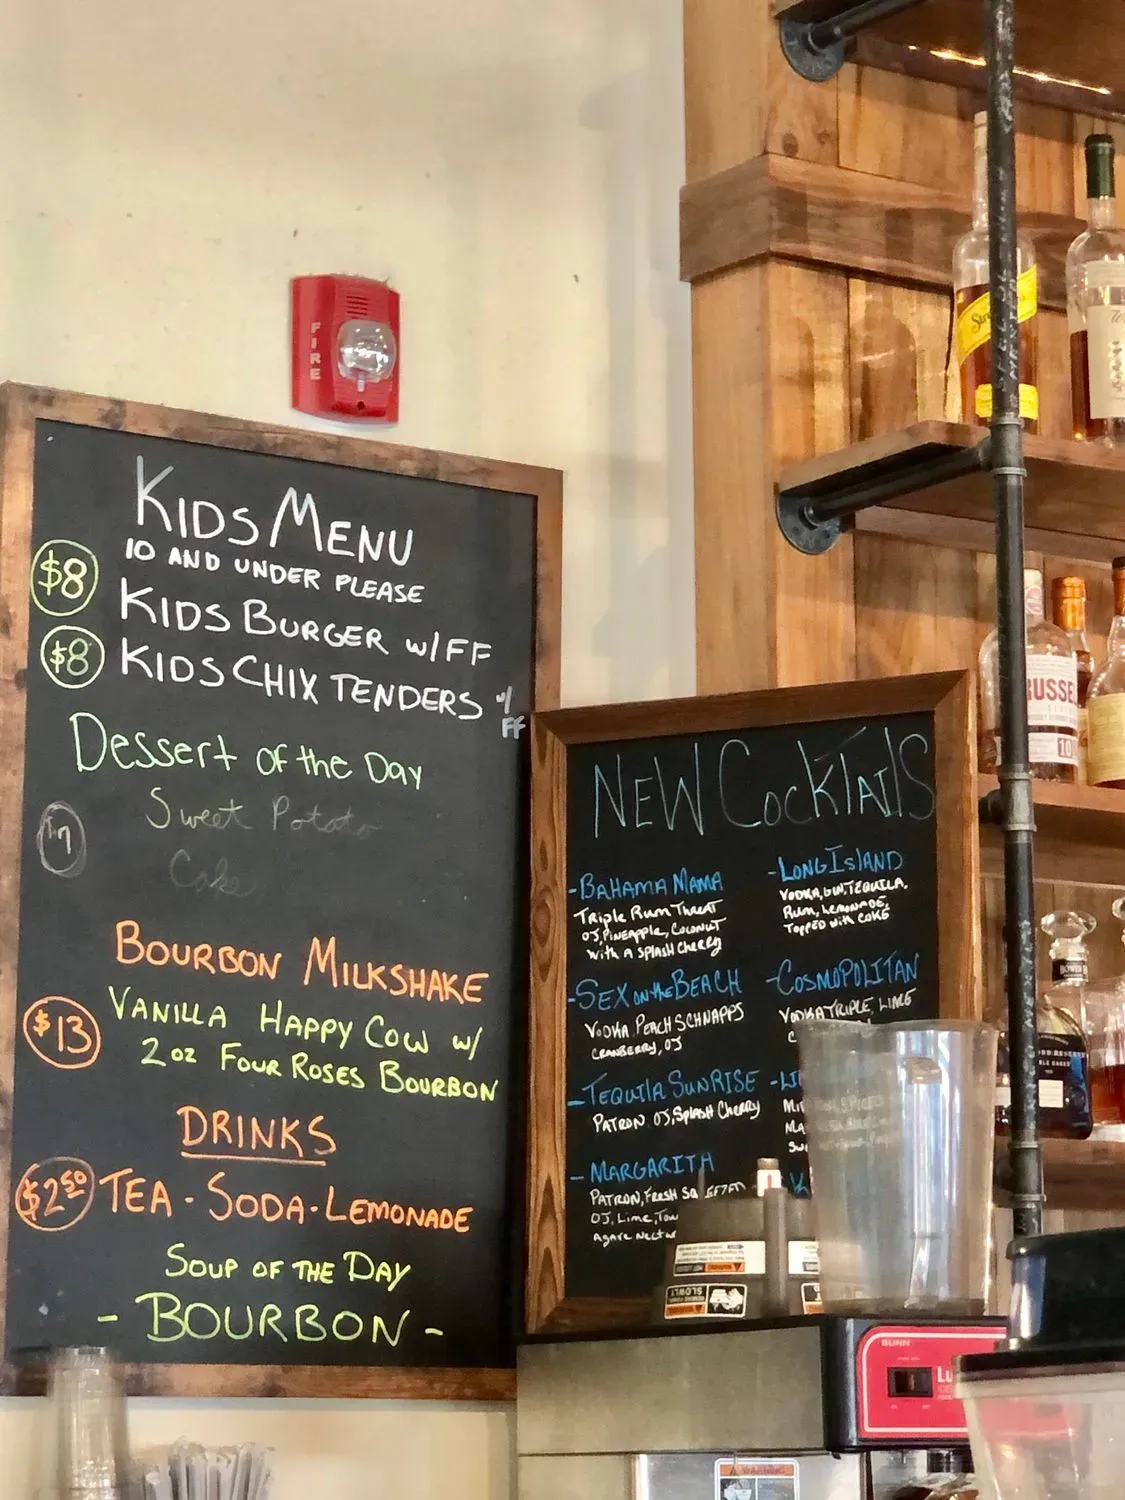 FIRE
KIDS MENU
10 AND UNDER PLEASE
$8 KIDS BURGER W/ FF
$8 KIDS CHIX TENDERS W/ FF
Dessert of the Day
$7 Sweet Potato
Cake
BOURBON MILKSHAKE
$13 VANILLA HAPPY COW W/
2 oz FOUR ROSES BOURBON
DRINKS
$2.50 TEA - SODA - LEMONADE
SOUP OF THE DAY
- BOURBON -
NEW COCKTAILS
- BAHAMA MAMA
Triple Rum Threat
OJ, Pineapple, Coconut
With A Splash Cherry
- SEX on the BEACH
VODKA, PEACH SCHNAPPS
CRANBERRY, OJ
- TEQUILA SUNRISE
PATRON OJ, Splash Cherry
- MARGARITA
PATRON, Fresh
OJ, Lime,
Agave Nectar
- LONG ISLAND
VODKA, GIN, TEQUILA,
Rum, Lemonade,
Topped with COKE
- COSMOPOLITAN
VODKA TRIPLE, LIME
RUSSEL
10
BUNN
WARNING
SLOWLY